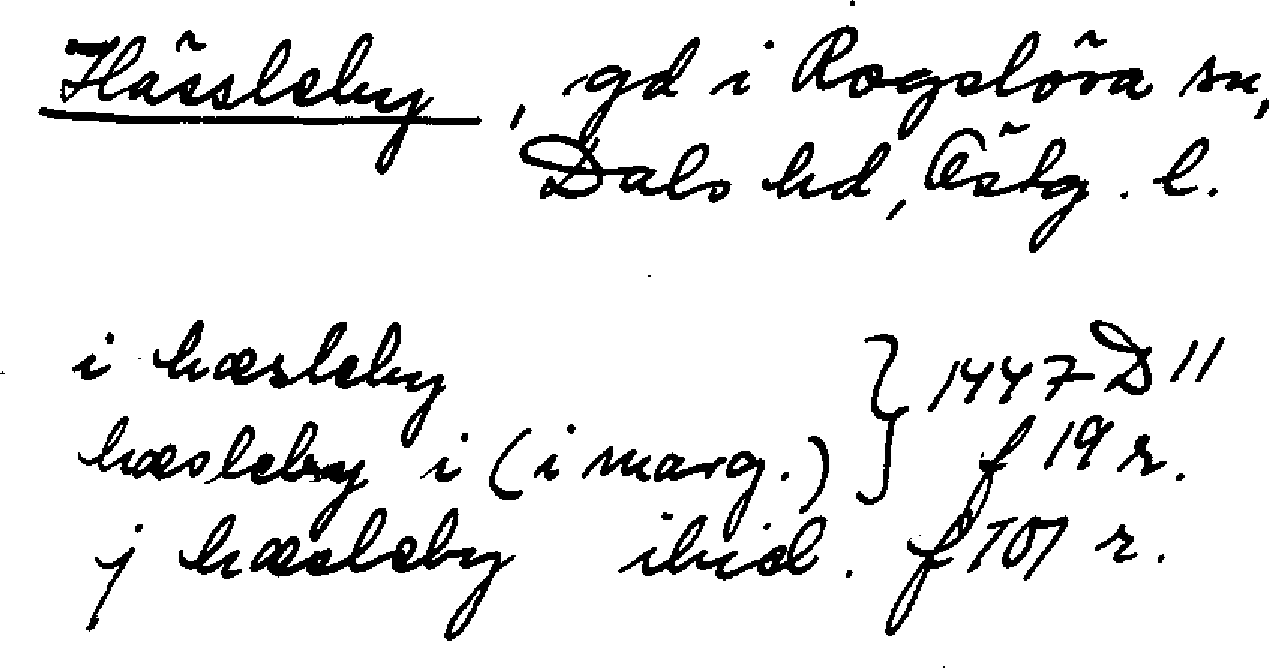 Hässleby, gd i Rogslösa sn,
Dals hd, Östg. l.
i hæsleby } 1447 D 11
hæsleby i (i marg.) } f 19 r.
j hæsleby ibid. f 101 r.